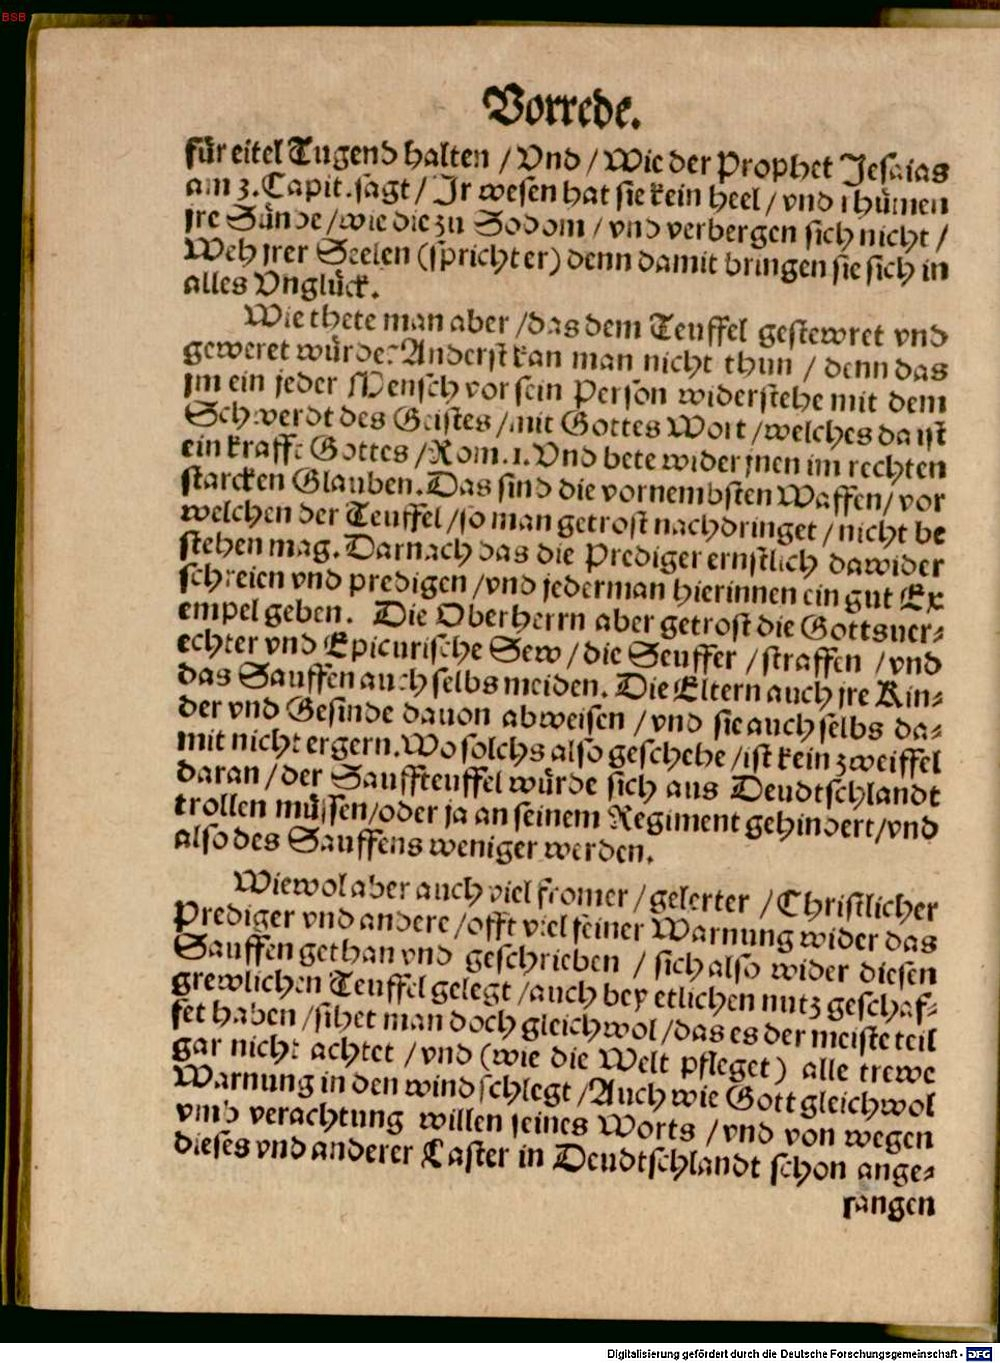 BSB
Vorrede.
für eitel Tugend halten / Vnd / Wie der Prophet Jesaias
am 3. Capit. sagt / Jr wesen hat sie kein heel / vnd rhümen
jre Sünde / wie die zu Sodom / vnd verbergen sich nicht /
Weh jrer Seelen (spricht er) denn damit bringen sie sich in
alles Vnglück.
Wie thete man aber / das dem Teuffel gestewret vnd
geweret würde? Anderst kan man nicht thun / denn das
jm ein jeder Mensch vor sein Person widerstehe mit dem
Schwerdt des Geistes / mit Gottes Wort / welches da ist
ein krafft Gottes / Rom. 1. Vnd bete wider jnen im rechten
starcken Glauben. Das sind die vornembsten Waffen / vor
welchen der Teuffel / so man getrost nachdringet / nicht be
stehen mag. Darnach das die Prediger ernstlich dawider
schreien vnd predigen / vnd jederman hierinnen ein gut Ex
empel geben. Die Oberherrn aber getrost die Gottsuer⸗
echter vnd Epicurische Sew / die Seuffer / straffen / vnd
das Sauffen auch selbs meiden. Die Eltern auch jre Kin⸗
der vnd Gesinde dauon abweisen / vnd sie auch selbs da⸗
mit nicht ergern. Wo solchs also geschehe / ist kein zweiffel
daran / der Sauffteuffel würde sich aus Deudtschlandt
trollen müssen / oder ja an seinem Regiment gehindert / vnd
also des Sauffens weniger werden.
Wiewol aber auch viel fromer / gelerter / Christlicher
Prediger vnd andere / offt viel feiner Warnung wider das
Sauffen gethan vnd geschrieben / sich also wider diesen
grewlichen Teuffel gelegt / auch bey etlichen nutz geschaf⸗
fet haben / sihet man doch gleichwol / das es der meiste teil
gar nicht achtet / vnd (wie die Welt pfleget) alle trewe
Warnung in den wind schlegt / Auch wie Gott gleichwol
vmb verachtung willen seines Worts / vnd von wegen
dieses vnd anderer Laster in Deudtschlandt schon ange⸗
fangen
Digitalisierung gefördert durch die Deutsche Forschungsgemeinschaft - DFG